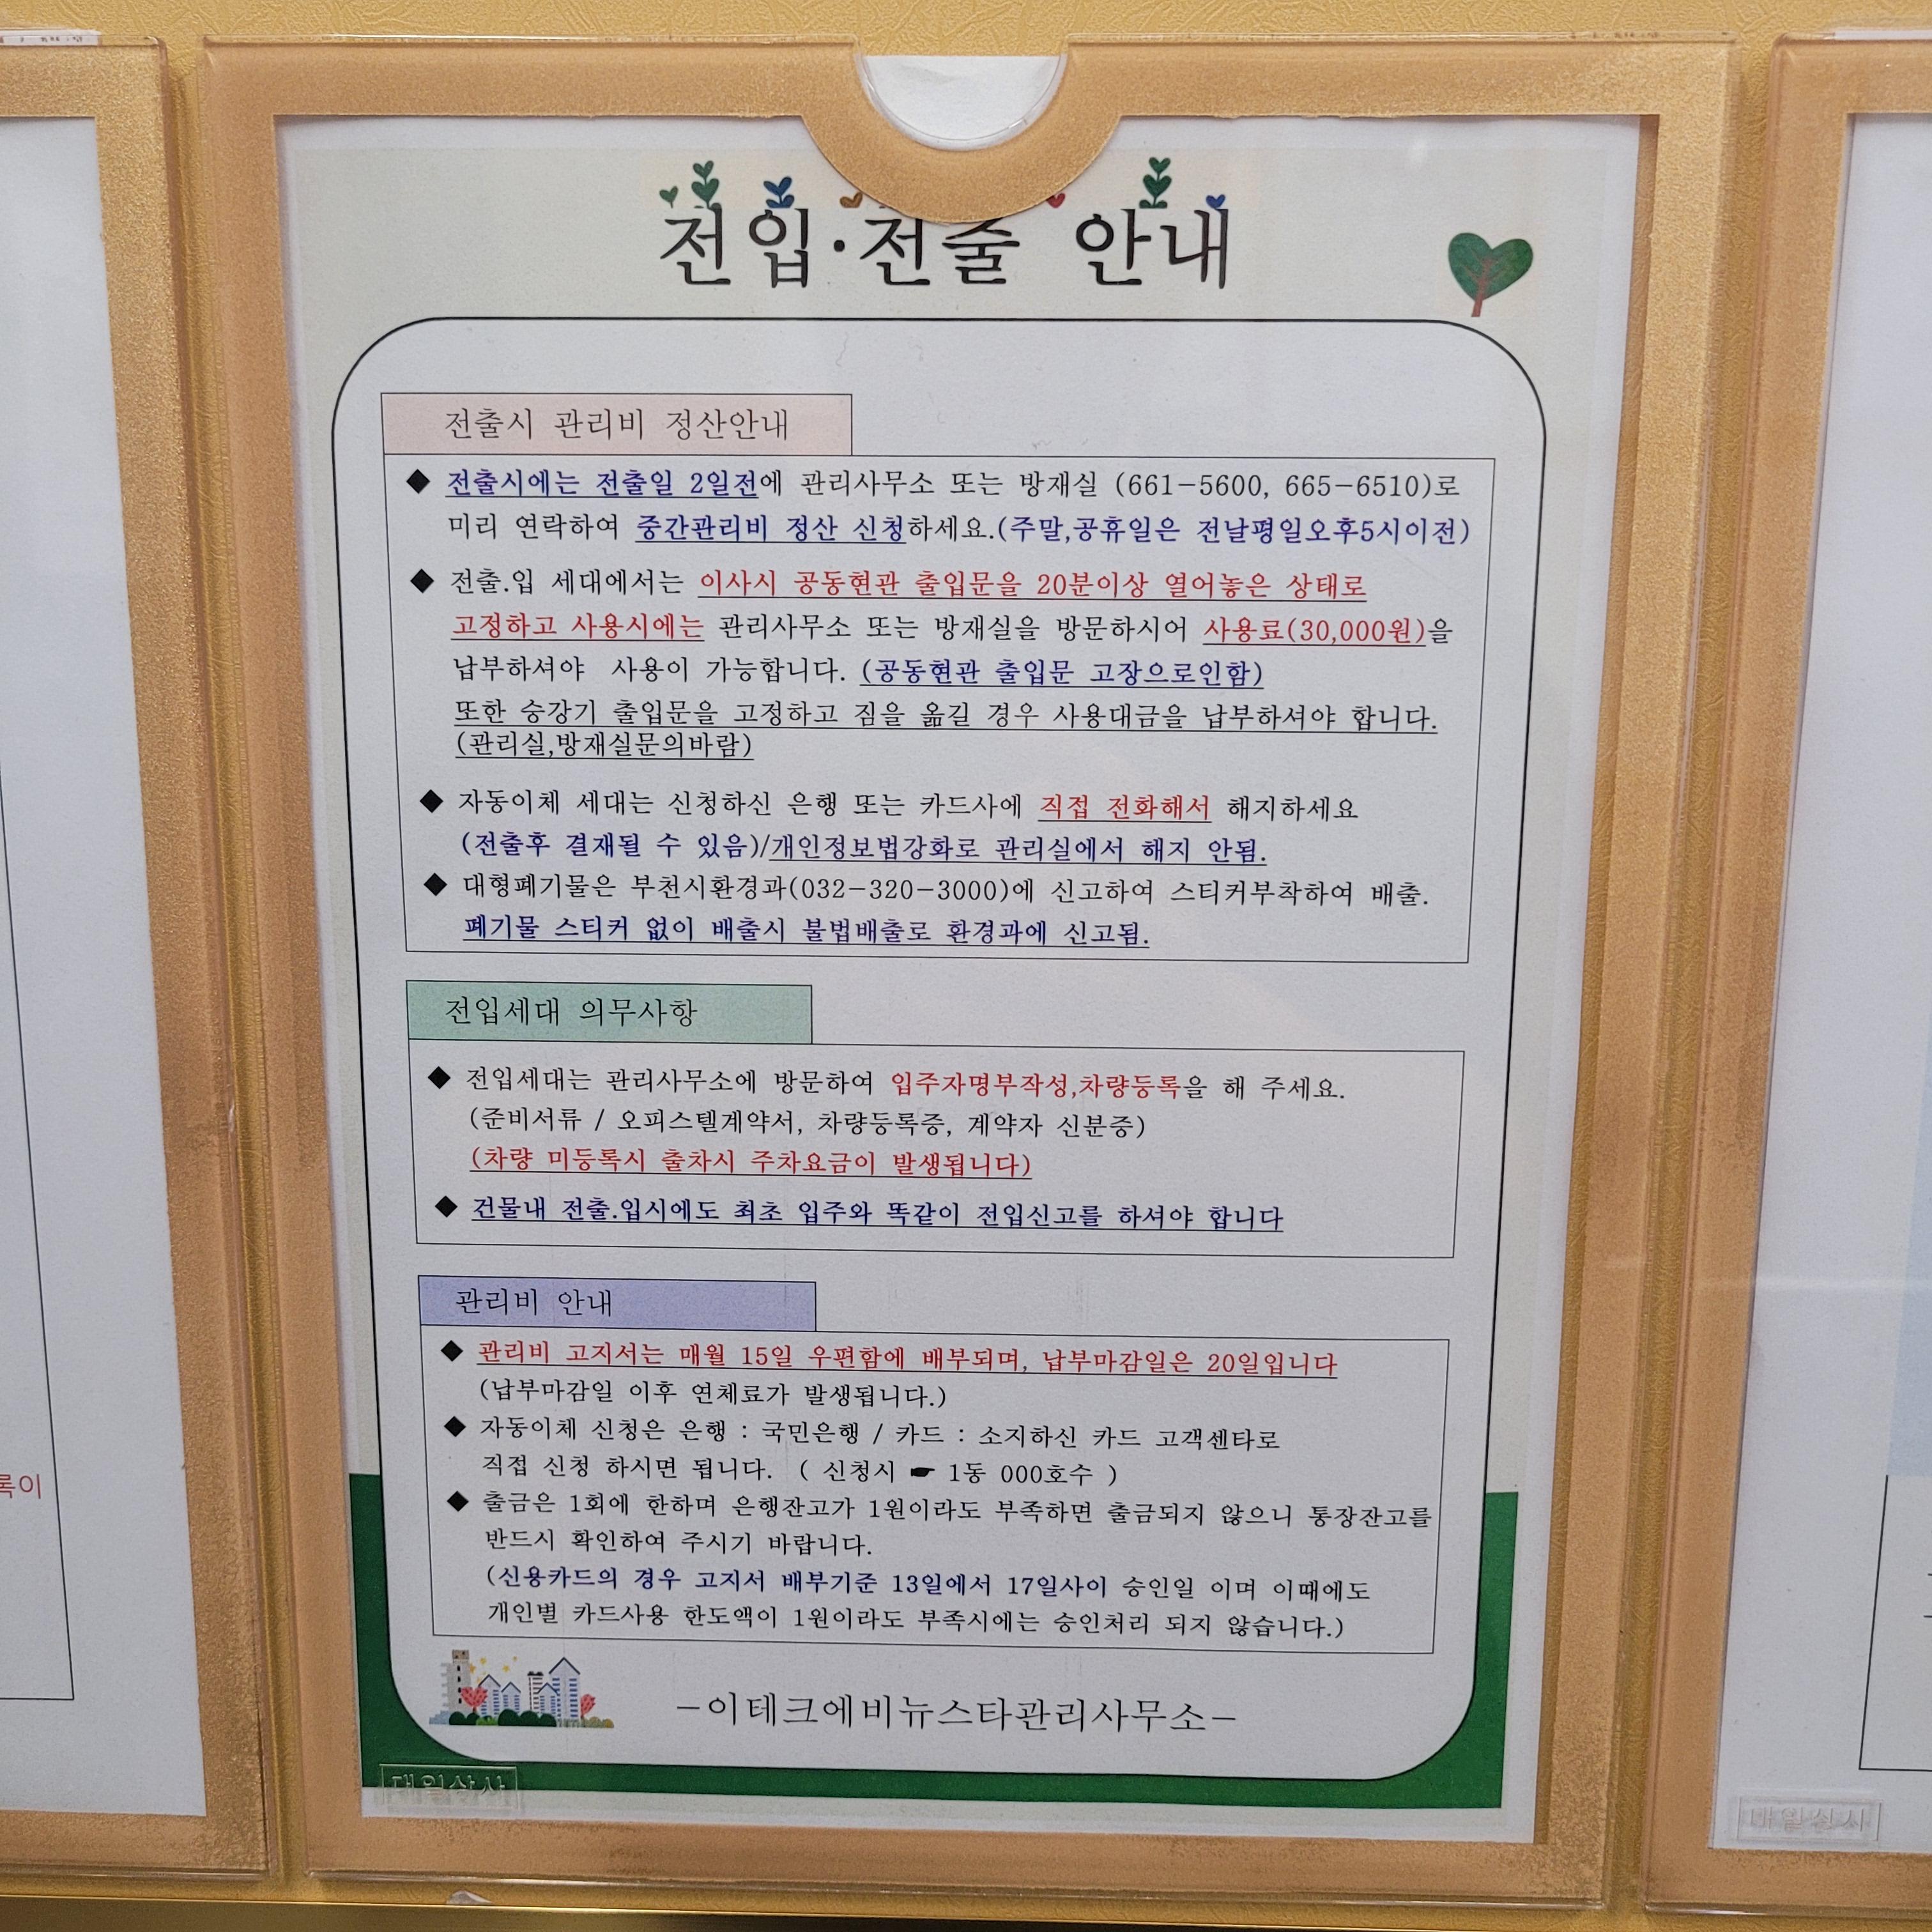 전입·전출 안내
전출시 관리비 정산안내
◆ 전출시에는 전출일 2일전에 관리사무소 또는 방재실 (661-5600, 665-6510)로
미리 연락하여 중간관리비 정산 신청하세요.(주말,공휴일은 전날평일오후5시이전)
◆ 전출.입 세대에서는 이사시 공동현관 출입문을 20분이상 열어놓은 상태로
고정하고 사용시에는 관리사무소 또는 방재실을 방문하시어 사용료(30,000원)을
납부하셔야 사용이 가능합니다. (공동현관 출입문 고장으로인함)
또한 승강기 출입문을 고정하고 짐을 옮길 경우 사용대금을 납부하셔야 합니다.
(관리실,방재실문의바람)
◆ 자동이체 세대는 신청하신 은행 또는 카드사에 직접 전화해서 해지하세요
(전출후 결재될 수 있음)/개인정보법강화로 관리실에서 해지 안됨.
◆ 대형폐기물은 부천시환경과(032-320-3000)에 신고하여 스티커부착하여 배출.
폐기물 스티커 없이 배출시 불법배출로 환경과에 신고됨.
전입세대 의무사항
◆ 전입세대는 관리사무소에 방문하여 입주자명부작성,차량등록을 해 주세요.
(준비서류 / 오피스텔계약서, 차량등록증, 계약자 신분증)
(차량 미등록시 출차시 주차요금이 발생됩니다)
◆ 건물내 전출.입시에도 최초 입주와 똑같이 전입신고를 하셔야 합니다
관리비 안내
◆ 관리비 고지서는 매월 15일 우편함에 배부되며, 납부마감일은 20일입니다
(납부마감일 이후 연체료가 발생됩니다.)
◆ 자동이체 신청은 은행 : 국민은행 / 카드 : 소지하신 카드 고객센타로
직접 신청 하시면 됩니다. ( 신청시 ☛ 1동 000호수 )
◆ 출금은 1회에 한하며 은행잔고가 1원이라도 부족하면 출금되지 않으니 통장잔고를
반드시 확인하여 주시기 바랍니다.
(신용카드의 경우 고지서 배부기준 13일에서 17일사이 승인일 이며 이때에도
개인별 카드사용 한도액이 1원이라도 부족시에는 승인처리 되지 않습니다.)
-이테크에비뉴스타관리사무소-
록이